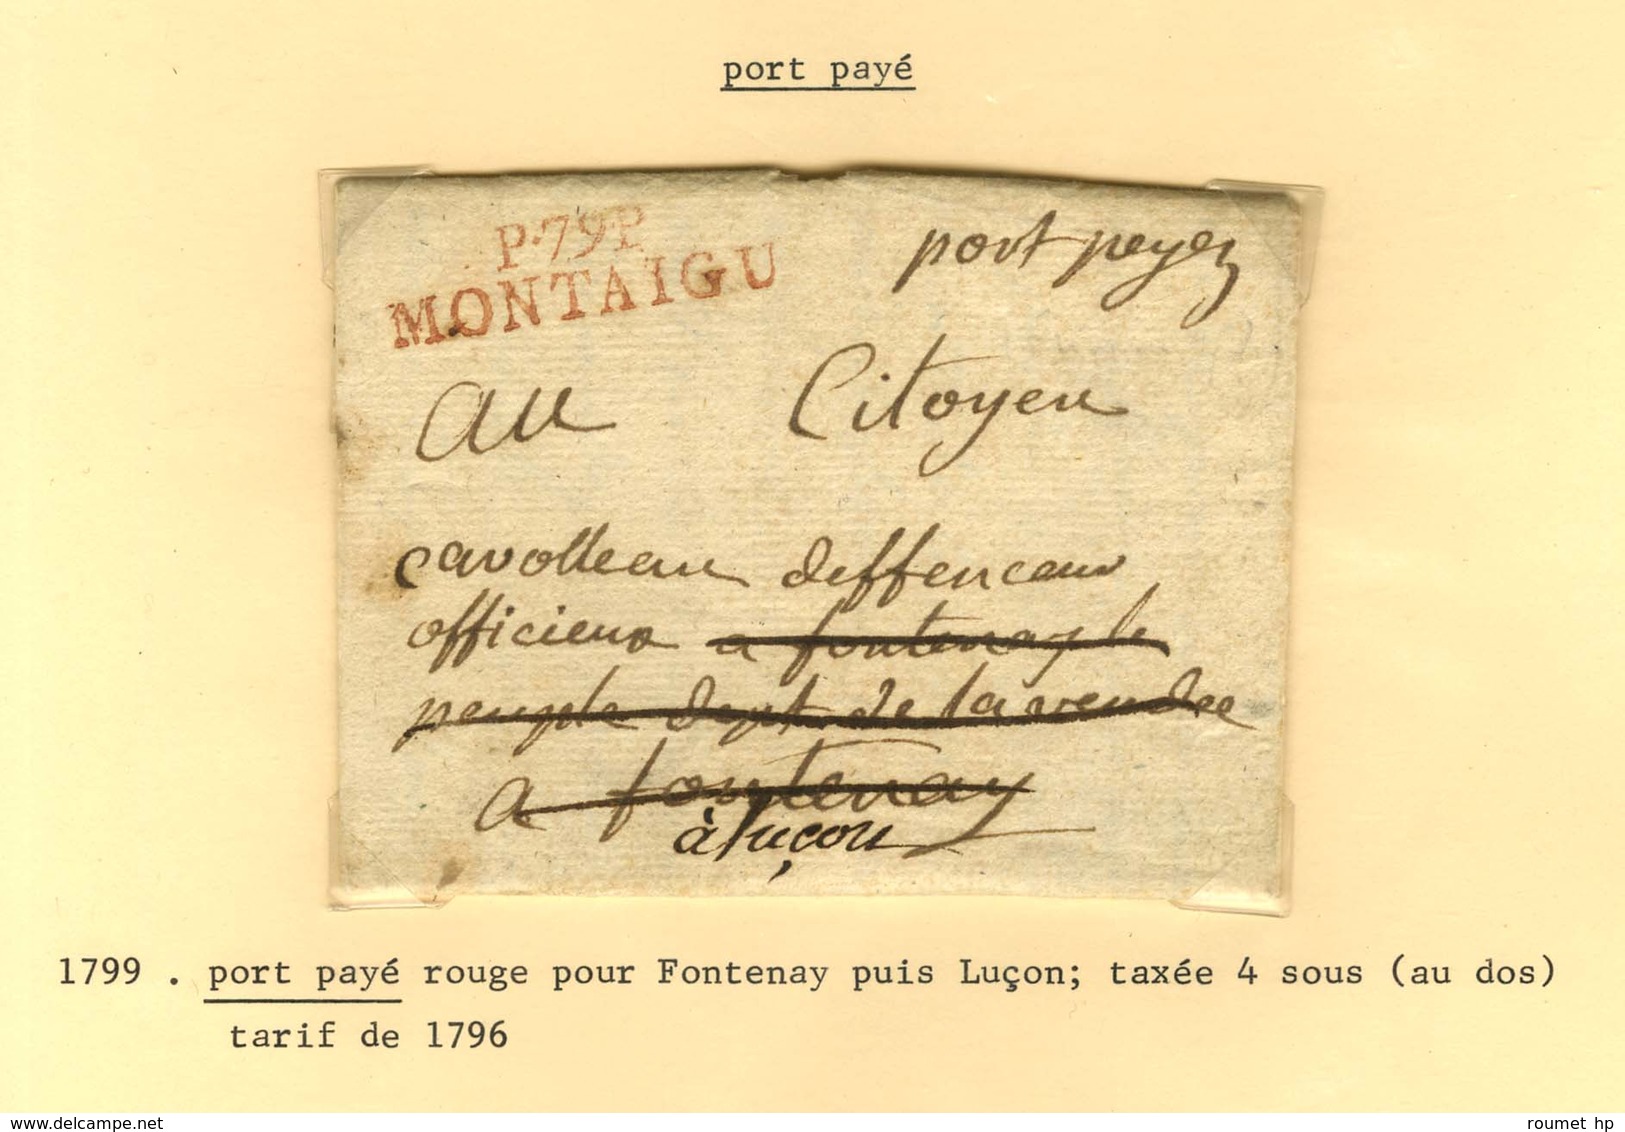 port payé
P.79P
MONTAIGU
port peyez
au Citoyen
cavolleau deffenceur
officieux a fontenay le
peuple dept de la vendee
a fontenay
à luçon
1799 . port payé rouge pour Fontenay puis Luçon; taxée 4 sous (au dos)
tarif de 1796
www.delcampe.net
roumet hp